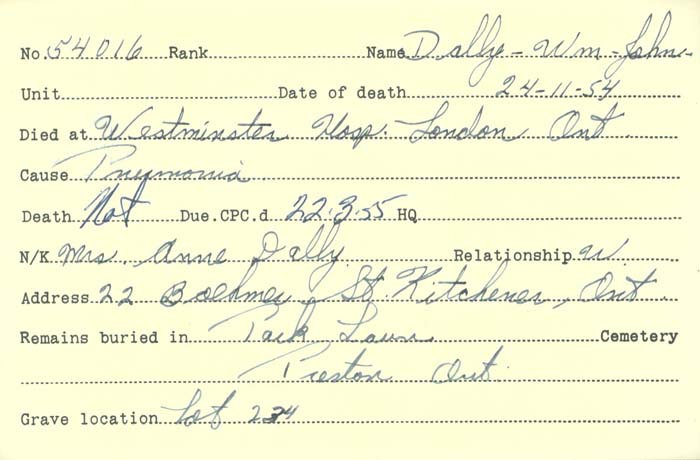 No. 54016 Rank Name Dally - Wm - John -
Unit Date of death 24-11-54
Died at Westminster Hosp. London Ont
Cause Pneumonia
Death Not Due. CPC.d 22.3.55 HQ
N/K Mrs. Anne Dally Relationship W.
Address 22 Boehmer St. Kitchener, Ont.
Remains buried in Park Lawn Cemetery
Preston Ont.
Grave location Lot 234